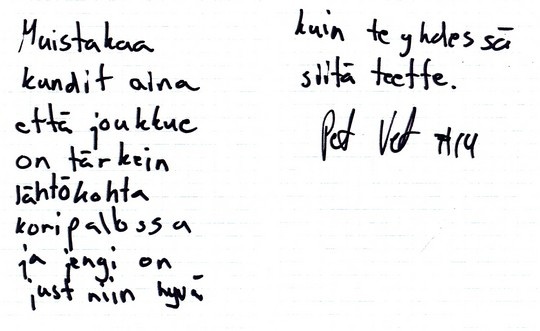 Muistakaa
kundit aina
että joukkue
on tärkein
lähtökohta
koripallossa
ja jengi on
just niin hyvä
kuin te yhdessä
siitä teette.
#14